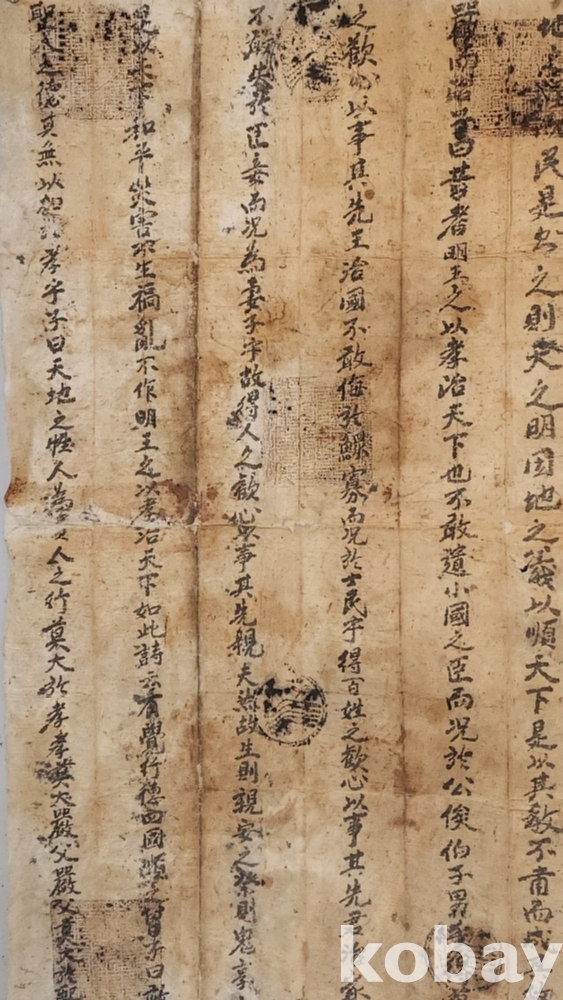 地
民是則之則天之明因地之義以順天下是以其教不肅而成
嚴而治曰昔者明王之以孝治天下也不敢遺小國之臣而况於公侯伯子男
之歡心以事其先王治國不敢侮於鰥寡而况於士民乎得百姓之歡心以事其先君
不敢失於臣妾而况為妻子乎故得人之歡心以事其先親夫然故生則親安之祭則鬼享
是以天下和平災害不生禍亂不作明王之以孝治天下如此詩云有覺行德四國順之曾子曰敢
聖人之德其無以加於孝乎子曰天地之性人為貴人之行莫大於孝孝莫大嚴父嚴父莫大於配
kobay